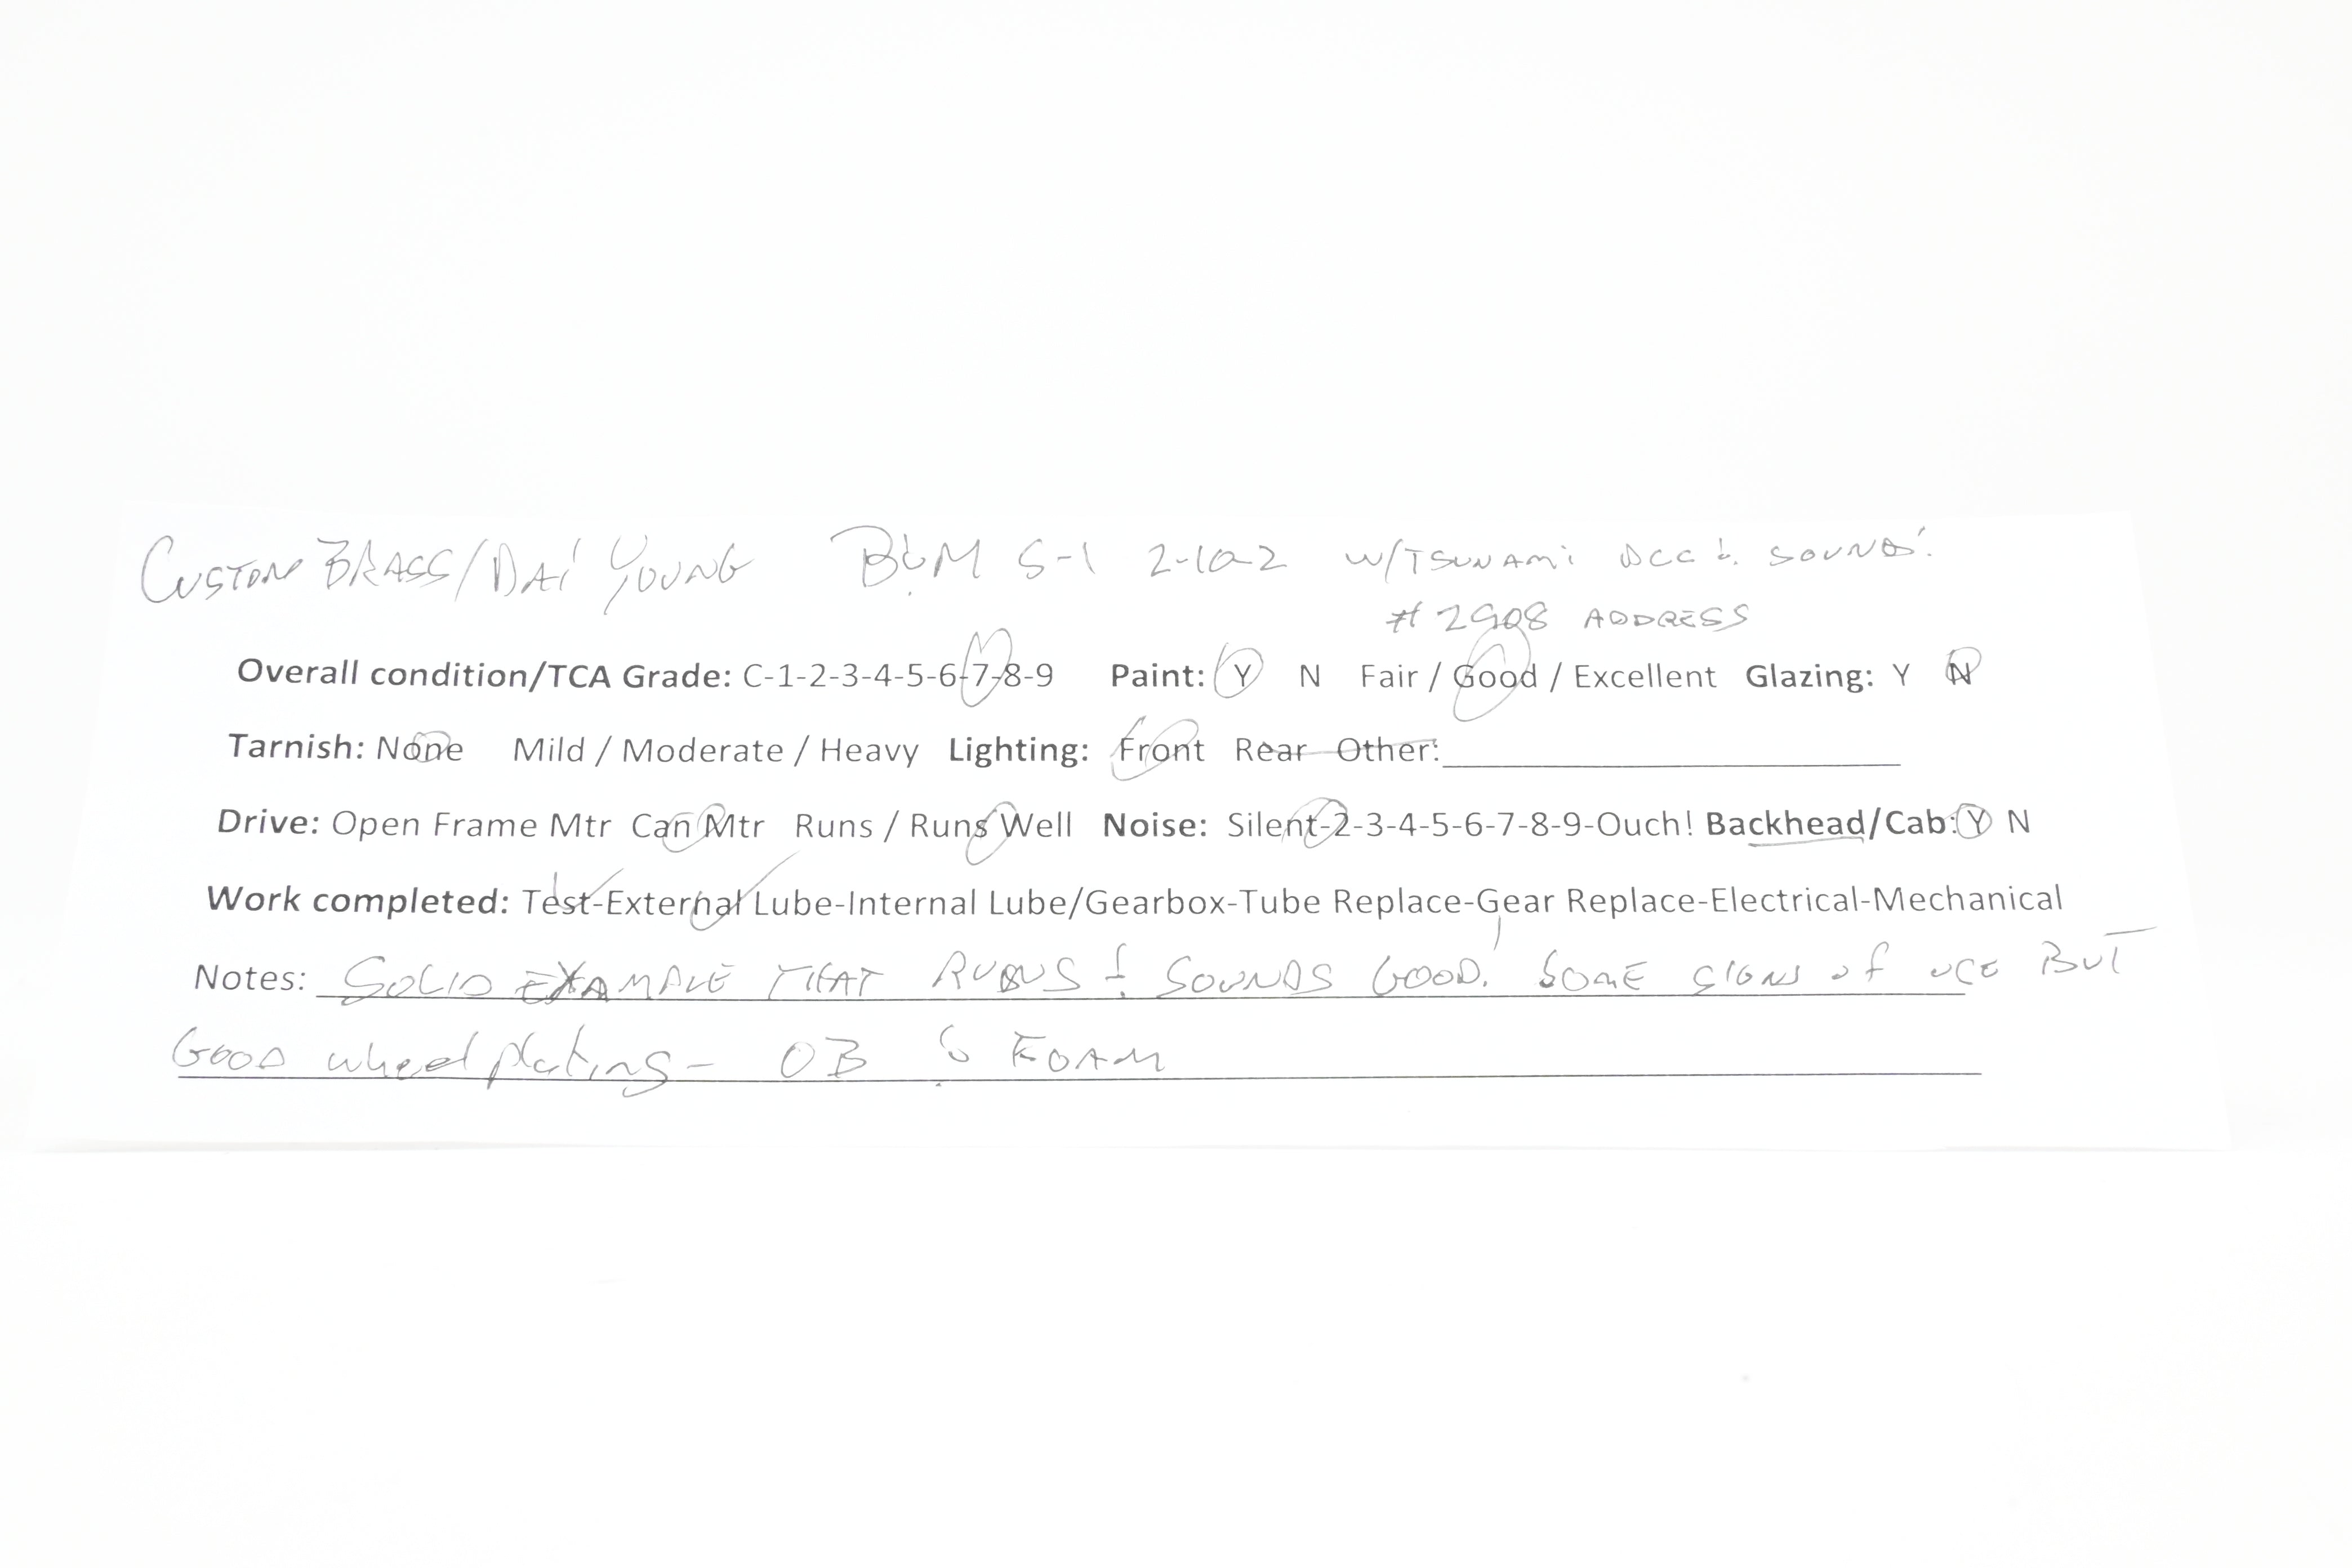 CUSTOM BRASS/DAI YOUNG B&M S-1 2-10-2 W/TSUNAMi DCC & SOUND!
# 2908 ADDRESS
Overall condition/TCA Grade: C-1-2-3-4-5-6-7-8-9 Paint: Y N Fair / Good / Excellent Glazing: Y N
Tarnish: None Mild / Moderate / Heavy Lighting: Front Rear Other:
Drive: Open Frame Mtr Can Mtr Runs / Runs Well Noise: Silent-2-3-4-5-6-7-8-9-Ouch! Backhead/Cab: Y N
Work completed: Test-External Lube-Internal Lube/Gearbox-Tube Replace-Gear Replace-Electrical-Mechanical
Notes: SOLID EXAMPLE THAT RUNS & SOUNDS GOOD! SOME SIGNS of USE BUT
GOOD wheel plating - OB & FOAM